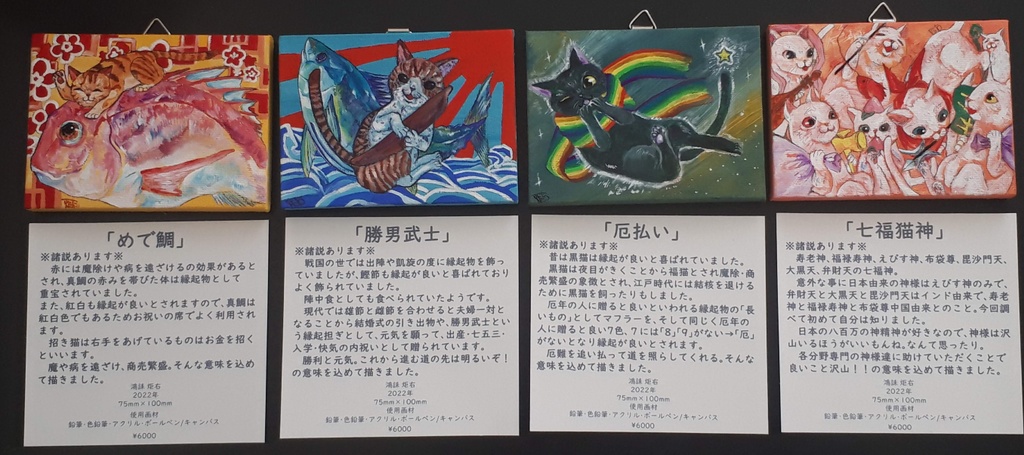 「めで鯛」
※諸説あります※
赤には魔除けや病を遠ざけるの効果があると
され、真鯛の赤みを帯びた体は縁起物として
重宝されていました。
また、紅白も縁起が良いとされますので、真鯛は
紅白色でもあるためお祝いの席でよく利用され
ます。
招き猫は右手をあげているものはお金を招く
といいます。
魔や病を遠ざけ、商売繁盛。そんな意味を込め
て描きました。
鴻誄 炬右
2022年
75mm×100mm
使用画材
鉛筆・色鉛筆・アクリル・ボールペン/キャンバス
¥6000
「勝男武士」
※諸説あります※
戦国の世では出陣や凱旋の度に縁起物を飾っ
ていましたが、鰹節も縁起が良いと喜ばれており
よく飾られていました。
陣中食としても食べられていたようです。
現代では雄節と雌節を合わせると夫婦一対と
なることから結婚式の引き出物や、勝男武士とい
う縁起担ぎとして、元気を願って、出産・七五三・
入学・快気の内祝いとして贈られています。
勝利と元気。これから進む道の先は明るいぞ!
の意味を込めて描きました。
鴻誄 炬右
2022年
75mm×100mm
使用画材
鉛筆・色鉛筆・アクリル・ボールペン/キャンバス
¥6000
「厄払い」
※諸説あります※
昔は黒猫は縁起が良いと喜ばれていました。
黒猫は夜目がきくことから福猫とされ魔除・商
売繁盛の象徴とされ、江戸時代には結核を退け
るために黒猫を飼ったりもしました。
厄年の人に贈ると良いといわれる縁起物の「長
いもの」としてマフラーを、そして同じく厄年の
人に贈ると良い7色、7には「8」「9」がない→「厄」
がないとなり縁起が良いとされます。
厄難を追い払って道を照らしてくれる。そんな
意味を込めて描きました。
鴻誄 炬右
2022年
75mm×100mm
使用画材
鉛筆・色鉛筆・アクリル・ボールペン/キャンバス
¥6000
「七福猫神」
※諸説あります※
寿老神、福禄寿神、えびす神、布袋尊、毘沙門天、
大黒天、弁財天の七福神。
意外な事に日本由来の神様はえびす神のみで、
弁財天と大黒天と毘沙門天はインド由来で、寿老
神と福禄寿神と布袋尊中国由来とのこと。今回調
べて初めて自分は知りました。
日本の八百万の神精神が好きなので、神様は沢
山いるほうがいいもんね。なんて思ったり。
各分野専門の神様達に助けていただくことで
良いこと沢山!!の意味を込めて描きました。
鴻誄 炬右
2022年
75mm×100mm
使用画材
鉛筆・色鉛筆・アクリル・ボールペン/キャンバス
¥6000